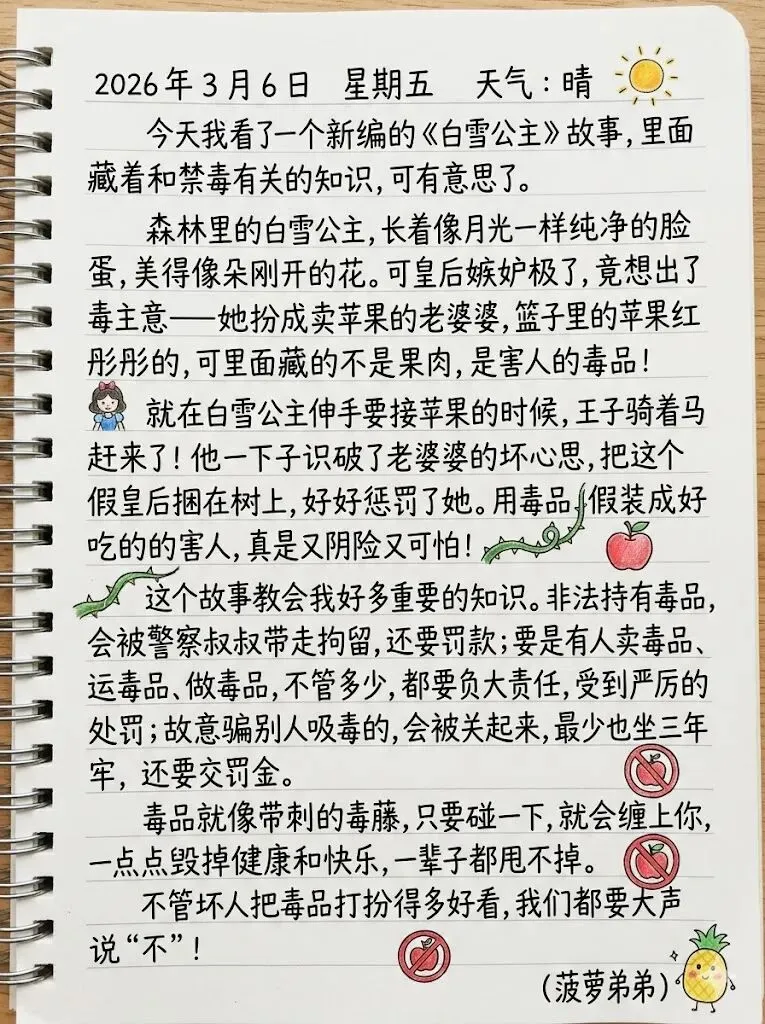 2026年3月6日 星期五 天气：晴
今天我看了一个新编的《白雪公主》故事，里面
藏着和禁毒有关的知识，可有意思了。
森林里的白雪公主，长着像月光一样纯净的脸
蛋，美得像朵刚开的花。可皇后嫉妒极了，竟想出了
毒主意——她扮成卖苹果的老婆婆，篮子里的苹果红
彤彤的，可里面藏的不是果肉，是害人的毒品！
就在白雪公主伸手要接苹果的时候，王子骑着马
赶来了！他一下子识破了老婆婆的坏心思，把这个
假皇后捆在树上，好好惩罚了她。用毒品假装成好
吃的的害人，真是又阴险又可怕！
这个故事教会我好多重要的知识。非法持有毒品，
会被警察叔叔带走拘留，还要罚款；要是有人卖毒品、
运毒品、做毒品，不管多少，都要负大责任，受到严厉的
处罚；故意骗别人吸毒的，会被关起来，最少也坐三年
牢，还要交罚金。
毒品就像带刺的毒藤，只要碰一下，就会缠上你，
一点点毁掉健康和快乐，一辈子都甩不掉。
不管坏人把毒品打扮得多好看，我们都要大声
说“不”！
（菠萝弟弟）